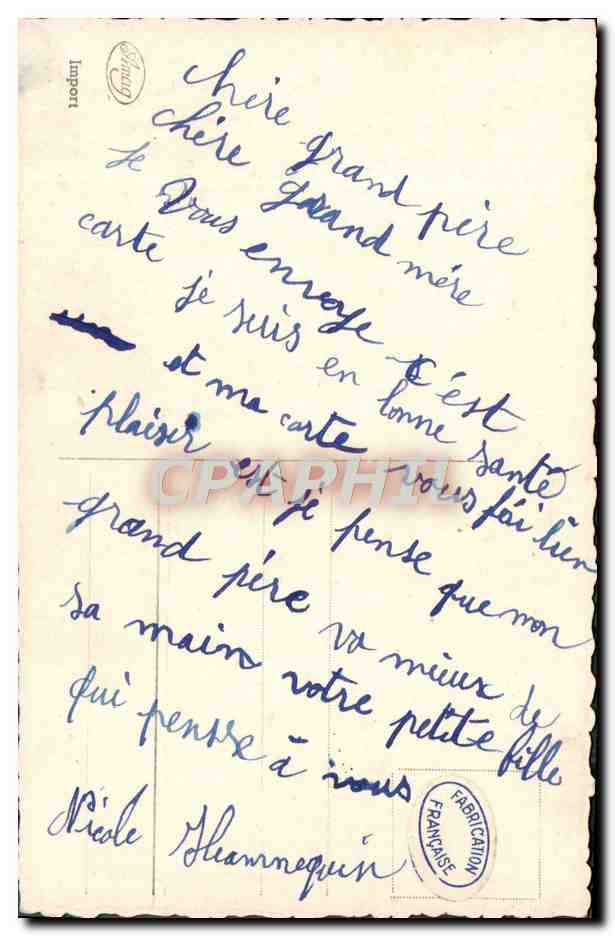 Amag
Import
chère grand père
chère grand mère
je vous envoye c'est
carte je suis en bonne santé
et ma carte vous fai bien
plaisir est je pense que mon
grand père va mieux de
sa main votre petite fille
qui pensse à vous
Nicole
CPAPHIL
FABRICATION
FRANÇAISE